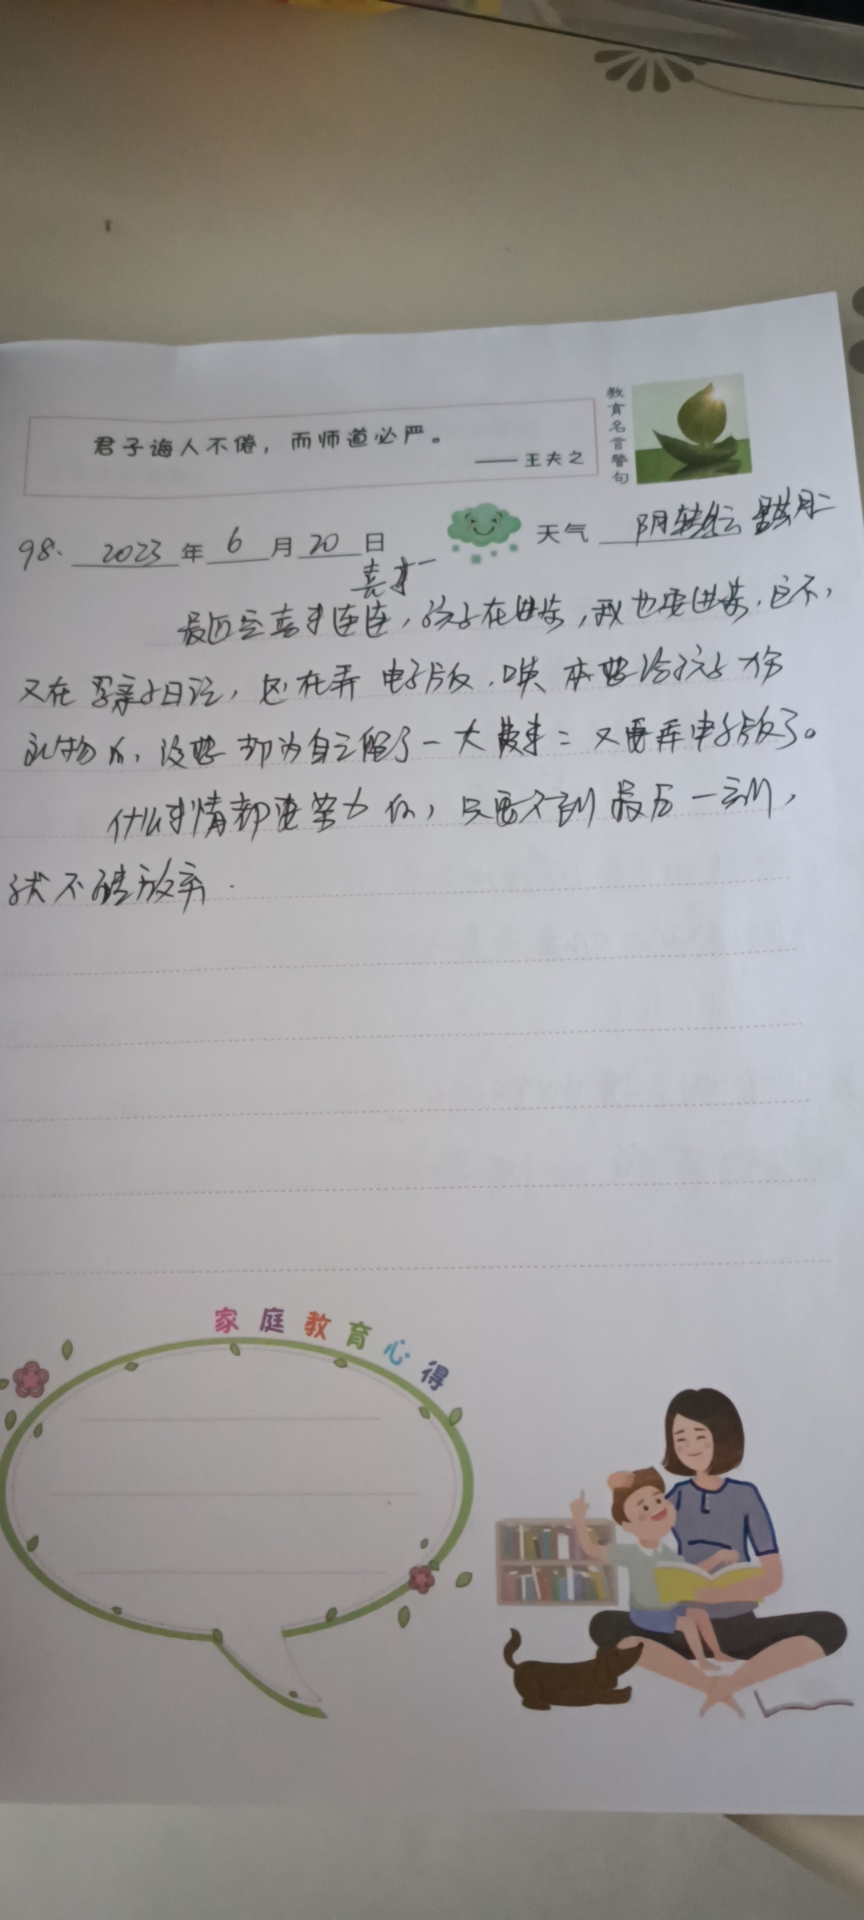 君子诲人不倦，而师道必严。
——王夫之
教育名言警句
98. 2023年6月20日 天气 阴转多云 星期二
喜事一
最近是喜事连连，孩子在进步，我也要进步，这不，
又在写亲子日记，还在弄电子版，唉 本想给孩子一份
礼物的，没想却为自己留了一大 又要弄电子版了。
什么事情都要努力的，只要不到最后一刻，
我不能放弃.
家庭教育心得